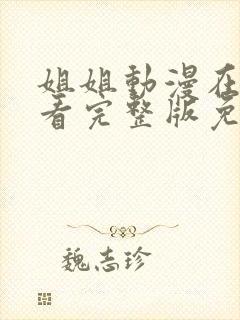 姐姐動漫在
看完整版免
魏志珍